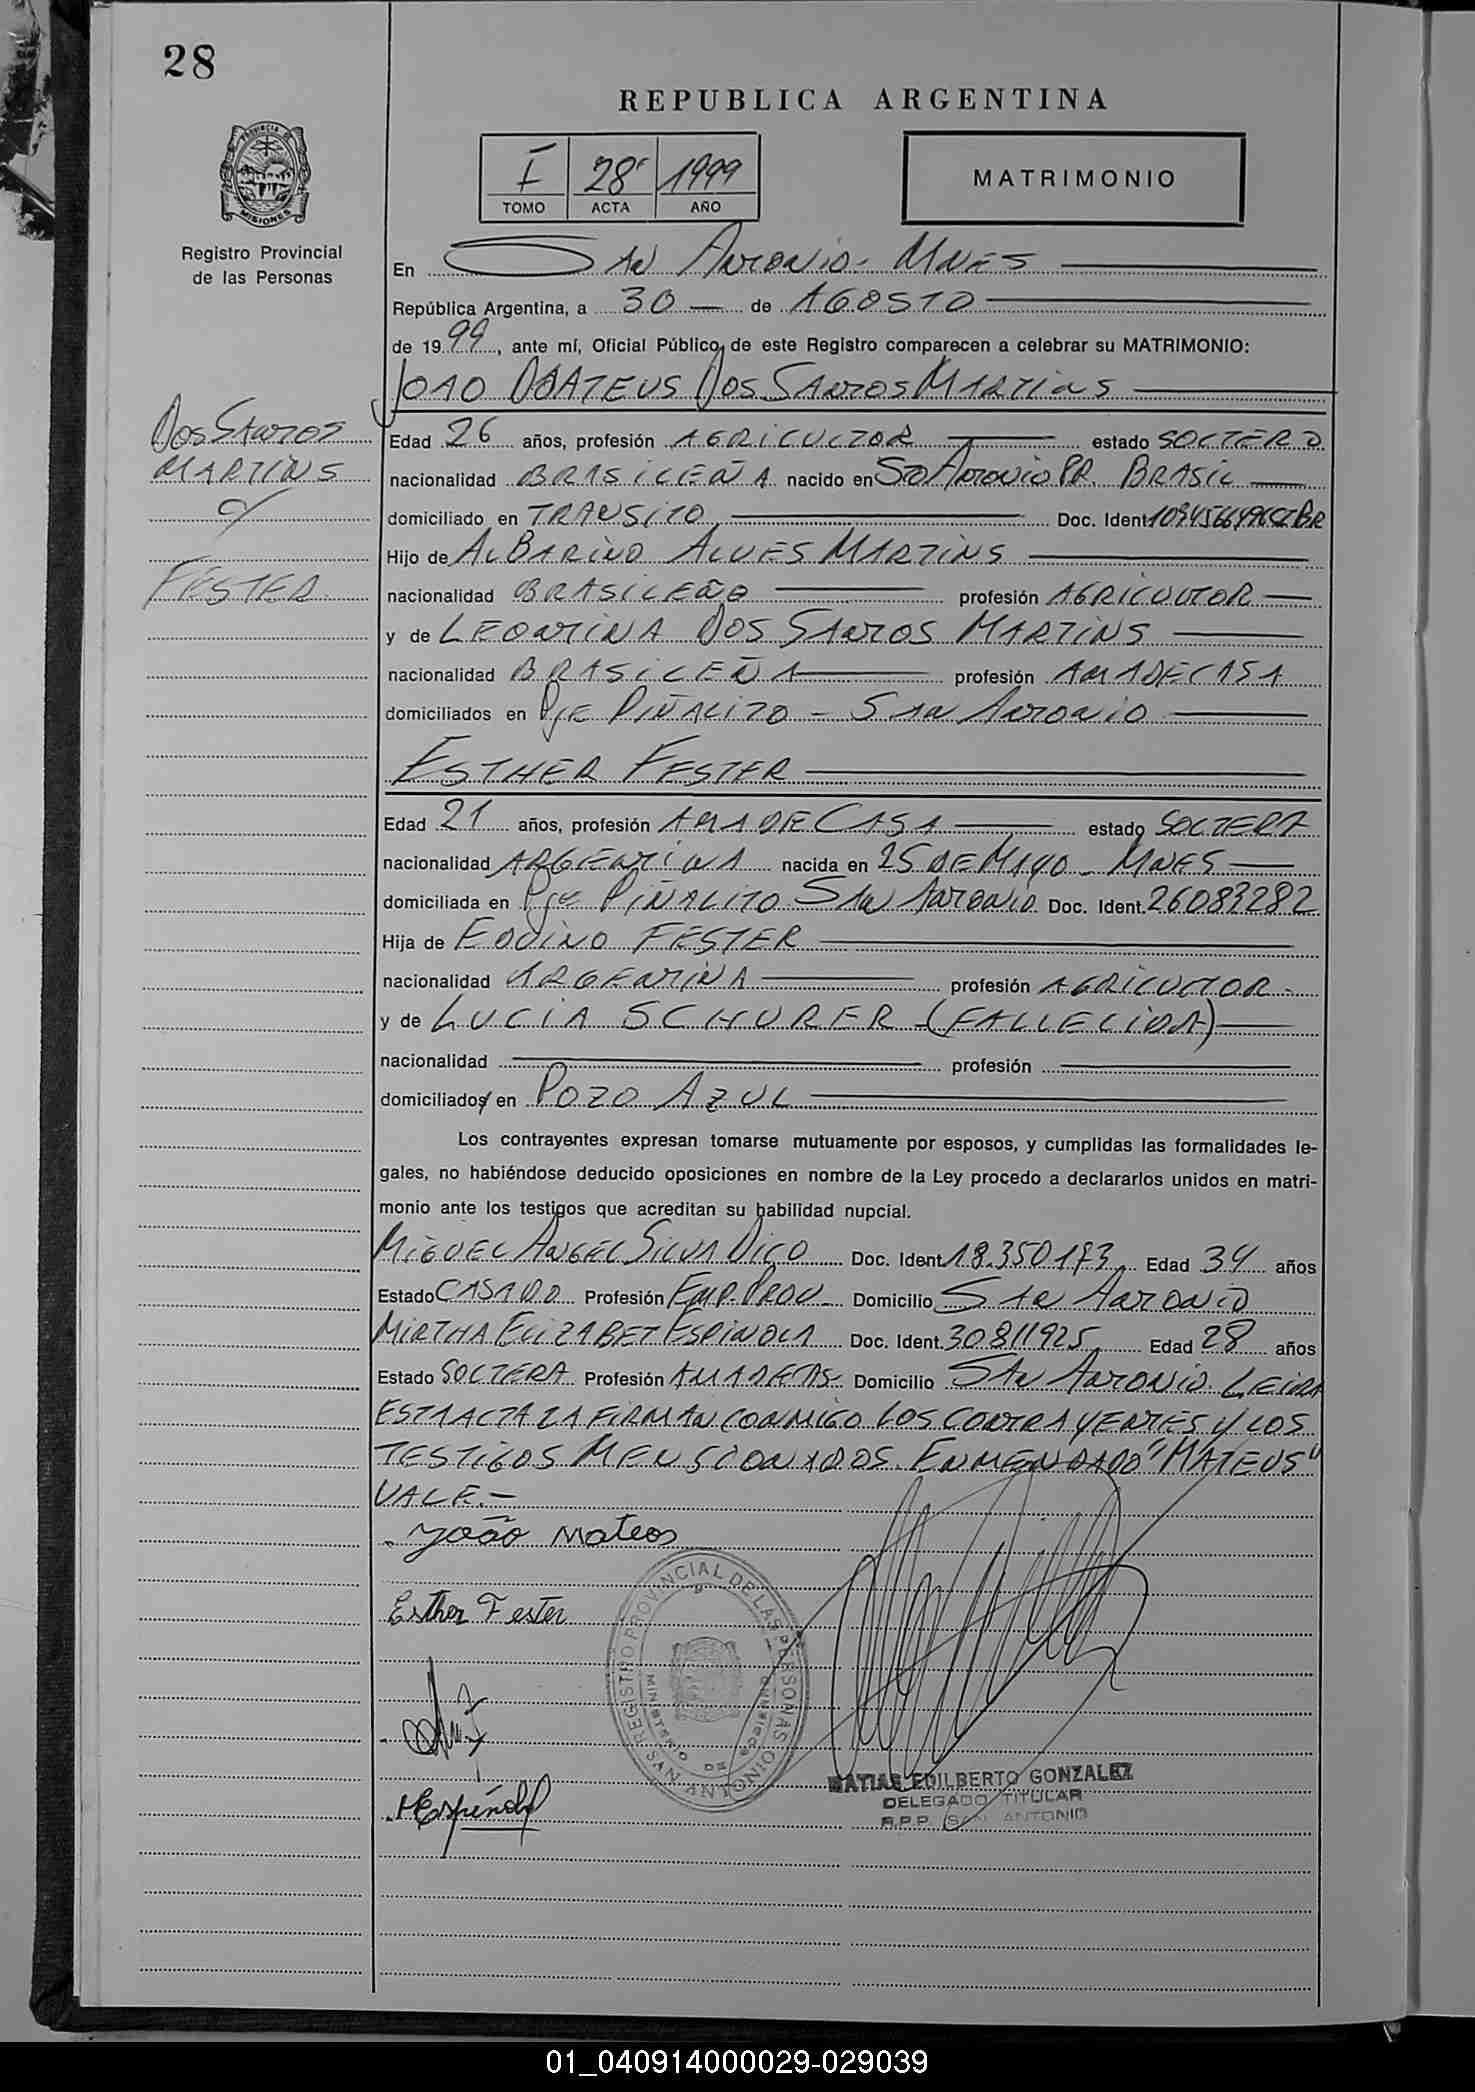 28
REPUBLICA ARGENTINA
I 28 1999
TOMO ACTA AÑO
MATRIMONIO
PROVINCIA DE MISIONES
Registro Provincial
de las Personas
En San Antonio - Mnes
República Argentina, a 30 - de AGOSTO
de 1999, ante mí, Oficial Público, de este Registro comparecen a celebrar su MATRIMONIO:
JOAO MATEUS DOS SANTOS MARTINS
DOS SANTOS
MARTINS
c/
FESTER
Edad 26 años, profesión AGRICULTOR estado SOLTERO
nacionalidad BRASILEÑA nacido en STO ANTONIO PR. BRASIL
domiciliado en TRANSITO Doc. Ident.
Hijo de ALBARINO ALVES MARTINS
nacionalidad BRASILEÑO profesión AGRICULTOR
y de LEONTINA DOS SANTOS MARTINS
nacionalidad BRASILEÑA profesión AMA DE CASA
domiciliados en Pje PIÑALITO - SAN ANTONIO
ESTHER FESTER
Edad 21 años, profesión AMA DE CASA estado SOLTERA
nacionalidad ARGENTINA nacida en 25 DE MAYO - MNES
domiciliada en Pje PIÑALITO SAN ANTONIO Doc. Ident. 26083282
Hija de EDVINO FESTER
nacionalidad ARGENTINA profesión AGRICULTOR -
y de LUCIA SCHURER - (FALLECIDA)
nacionalidad profesión
domiciliados en POZO AZUL
Los contrayentes expresan tomarse mutuamente por esposos, y cumplidas las formalidades le-
gales, no habiéndose deducido oposiciones en nombre de la Ley procedo a declararlos unidos en matri-
monio ante los testigos que acreditan su habilidad nupcial.
MIGUEL ANGEL SILVA DICO Doc. Ident. 18.350173 Edad 34 años
Estado CASADO Profesión EMP. PROV. Domicilio SAN ANTONIO
MIRTHA ELIZABET ESPINOLA Doc. Ident. 30811925 Edad 28 años
Estado SOLTERA Profesión AMA DE CAS. Domicilio SAN ANTONIO. LEIDA
ESTA ACTA LA FIRMAN CONMIGO LOS CONTRAYENTES Y LOS
TESTIGOS MENSIONADOS. ENMENDADO "MATEUS"
VALE.-
João Mateos
Esther Fester
REGISTRO PROVINCIAL DE LAS PERSONAS
MINISTERIO DE GOBIERNO
SAN ANTONIO
MEspínola
MATIAS EDILBERTO GONZALEZ
DELEGADO TITULAR
R.P.P. SAN ANTONIO
01_040914000029-029039